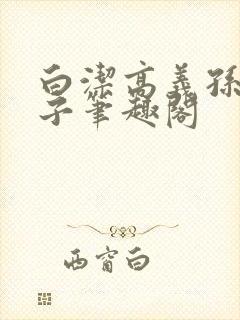 白潔高義孫
子筆趣閣
西窗白